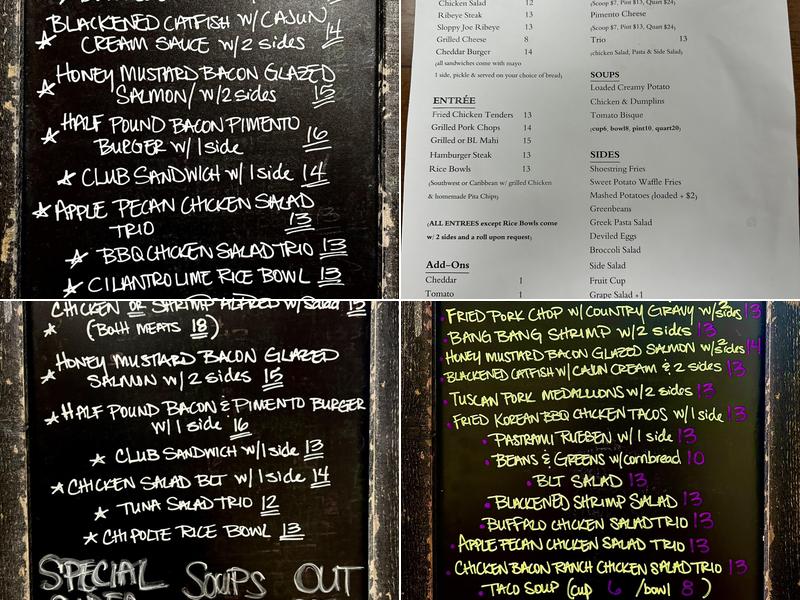 BLACKENED CATFISH W/ CAJUN
CREAM SAUCE w/2 sides 14
HONEY MUSTARD BACON GLAZED
SALMON/ w/2 sides 15
HALF POUND BACON PIMENTO
BURGER w/ 1 side 16
CLUB SANDWICH w/1 side 14
APPLE PECAN CHICKEN SALAD
TRIO 13
BBQ CHICKEN SALAD TRIO 13
CILANTRO LIME RICE BOWL 13
Chicken Salad 12
Ribeye Steak 13
Sloppy Joe Ribeye 13
Grilled Cheese 8
Cheddar Burger 14
(all sandwiches come with mayo
1 side, pickle & served on your choice of bread)
ENTRÉE
Fried Chicken Tenders 13
Grilled Pork Chops 14
Grilled or BL Mahi 15
Hamburger Steak 13
Rice Bowls 13
(Southwest or Caribbean w/ grilled Chicken
& homemade Pita Chips)
(ALL ENTREES except Rice Bowls come
w/ 2 sides and a roll upon request)
Add-Ons
Cheddar 1
Tomato 1
(Scoop $7, Pint $13, Quart $24)
Pimento Cheese
(Scoop $7, Pint $13, Quart $24)
Trio 13
(chicken Salad, Pasta & Side Salad)
SOUPS
Loaded Creamy Potato
Chicken & Dumplins
Tomato Bisque
(cup6, bowl8, pint10, quart20)
SIDES
Shoestring Fries
Sweet Potato Waffle Fries
Mashed Potatoes (loaded + $2)
Greenbeans
Greek Pasta Salad
Deviled Eggs
Broccoli Salad
Side Salad
Fruit Cup
Grape Salad +1
CHICKEN OR SHRIMP ALFRED w/Salad 15
(BOTH MEATS 18)
HONEY MUSTARD BACON GLAZED
SALMON w/2 sides 15
HALF POUND BACON & PIMENTO BURGER
w/ 1 side 16
CLUB SANDWICH w/1 side 13
CHICKEN SALAD BLT w/ 1 side 14
TUNA SALAD TRIO 12
CHIPOLTE RICE BOWL 13
SPECIAL SOUPS OUT
FRIED PORK CHOP W/ COUNTRY GRAVY w/2 sides 13
BANG BANG SHRIMP w/2 sides 13
HONEY MUSTARD BACON GLAZED SALMON w/2 sides 14
BLACKENED CATFISH w/ CAJUN CREAM & 2 sides 13
TUSCAN PORK MEDALLIONS w/2 sides 13
FRIED KOREAN BBQ CHICKEN TACOS w/1 side 13
PASTRAMI RUEBEN w/ 1 side 13
BEANS & GREENS w/cornbread 10
BLT SALAD 13
BLACKENED SHRIMP SALAD 13
BUFFALO CHICKEN SALAD TRIO 13
APPLE PECAN CHICKEN SALAD TRIO 13
CHICKEN BACON RANCH CHICKEN SALAD TRIO 13
TACO SOUP (cup 6 /bowl 8)